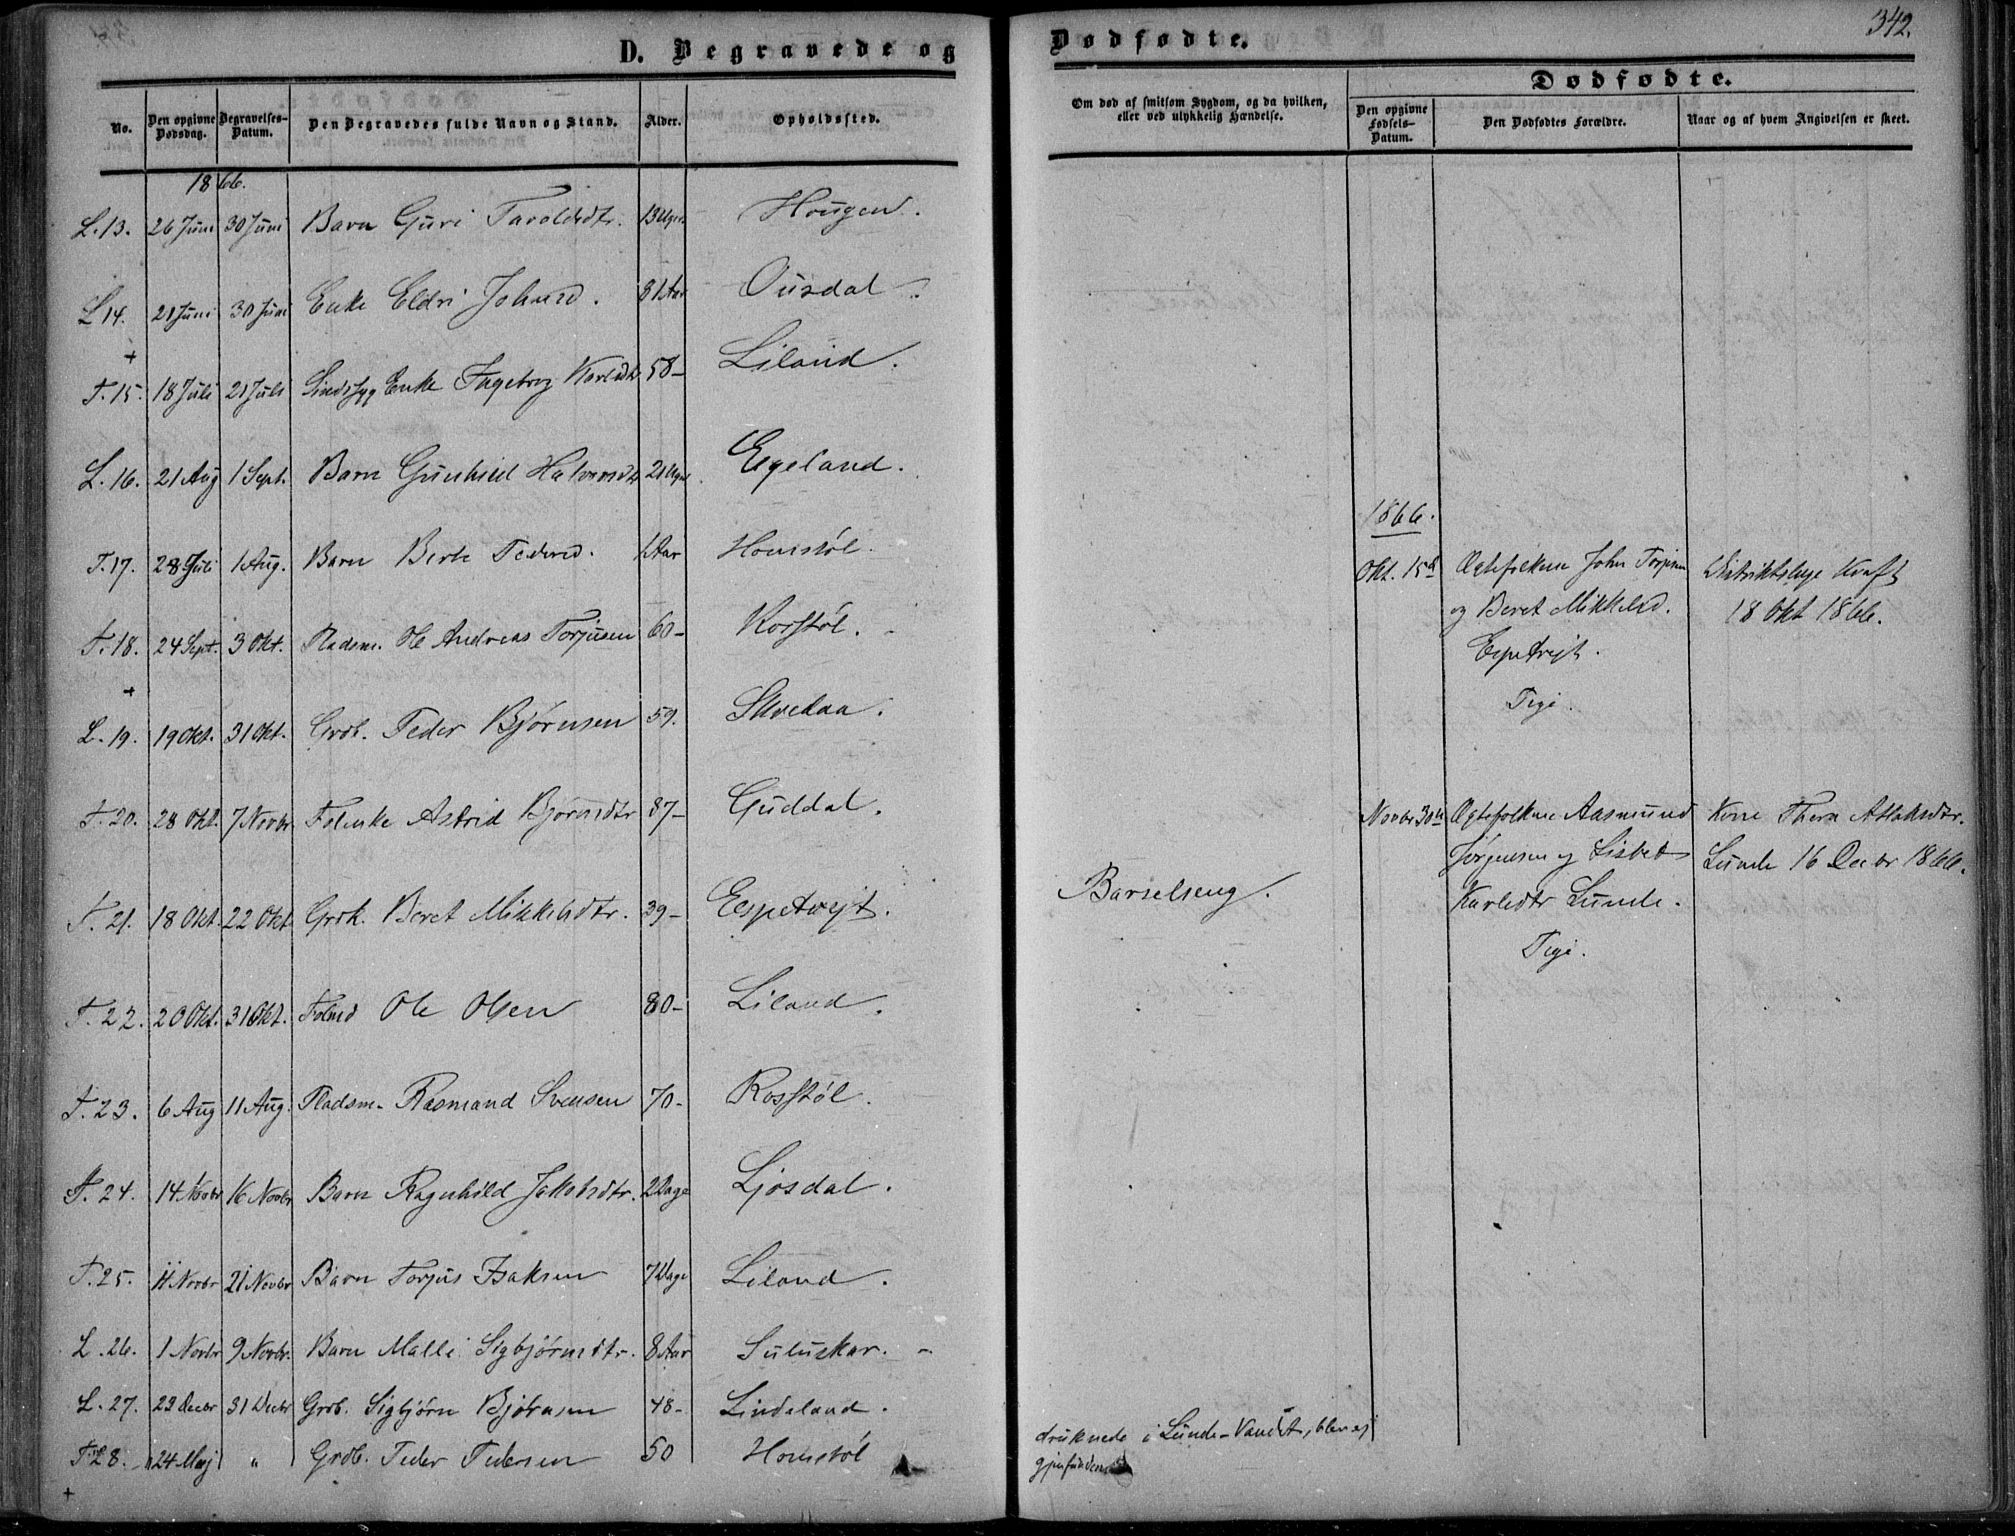 342.
D. Begravede og Dødfødte.
Dødfødte.
No. Den opgivne Dødsdag. Begravelses-Datum. Den Begravedes fulde Navn og Stand. Alder. Opholdssted.
Om død af smitsom Sygdom, og da hvilken, eller ved ulykkelig Hændelse. Den opgivne Fødsels-Datum. Den Dødfødtes Forældre. Naar og af hvem Angivelsen er skeet.
1866.
L. 13. 26 Juni 30 Juni Barn Guri Taraldsdtr. 13 Uger Hougen.
L 14. 21 Juni 30 Juni Enke Eldri Johnsd. 81 Aar Ousdal.
T. 15. 18 Juli 21 Juli Sindssyg Enke Ingeborg Karlsdtr 58 – Liland.
L. 16. 21 Aug 1 Sept. Barn Gunhild Halvorsdtr Egeland.
T. 17. 28 Juli 1 Aug. Barn Berte Pedersd. 1 Aar Homstøl.
T. 18. 24 Sept. 3 Okt. Pladsm. Ole Andreas Torjusen 60 – Rosstøl.
L. 19. 19 Okt. 31 Okt. Grdb. Peder Bjørnsen 59. Skredaa.
T. 20. 28 Okt. 7 Novbr Folenke Astrid Bjørnsdtr 87 – Guddal.
T. 21. 18 Okt. 22 Okt Grdk. Beret Mikkelsdtr. 39 – Espetvejt.
T. 22. 20 Okt. 31 Okt. Folmd Ole Olsen 80 – Liland.
T. 23. 6 Aug 11 Aug. Pladsm. Rasmund Svensen 70 – Rosstøl.
T. 24. 14 Novbr 16 Novbr Barn Ragnhild Jakobsdtr. 2 Dage Ljosdal.
T. 25. 11 Novbr 21 Novbr Barn Torjus Isaksen 7 Dage Liland.
L. 26. 1 Novbr 9 Novbr. Barn Malli Sigbjørnsdtr. 8 Aar Suluskar.
L. 27. 23 Decbr 31 Decbr Grdb. Sigbjørn Bjørnsen 48 – Lindeland.
T. 28. 24 Maj " Grdb. Peder Pedersen 50 Homstøl
Barselseng.
druknede i Lunde-Vandet, blev ej
gjenfunden
1866.
Okt. 15d Ægtefolkene John Torjusen Distriktslæge Kraft
og Beret Mikkelsd. 18 Okt 1866.
Espetvejt.
Pige.
Novbr 30te Ægtefolkene Aasmund Kone Thora Atlaksdtr.
Jørgensen og Lisbet Lunde 16 Decbr 1866.
Karlsdtr Lunde.
Pige.